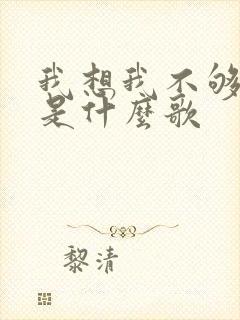 我想我不够
是什麼歌
黎清